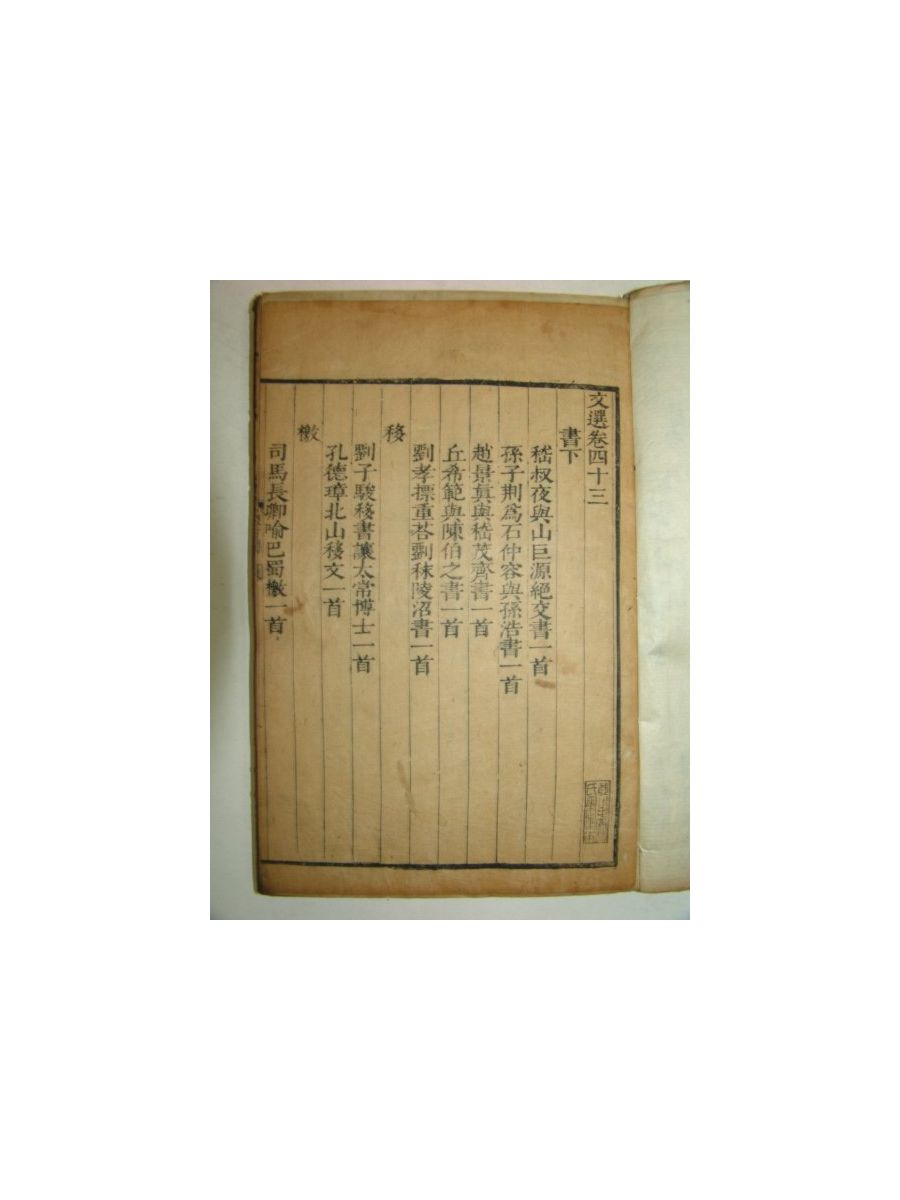 文選卷四十三
書下
嵇叔夜與山巨源絕交書一首
孫子荆爲石仲容與孫浩書一首
趙景眞與嵇茂齊書一首
丘希範與陳伯之書一首
劉孝標重荅劉秣陵沼書一首
移
劉子駿移書讓太常博士一首
孔德璋北山移文一首
檄
司馬長卿喻巴蜀檄一首